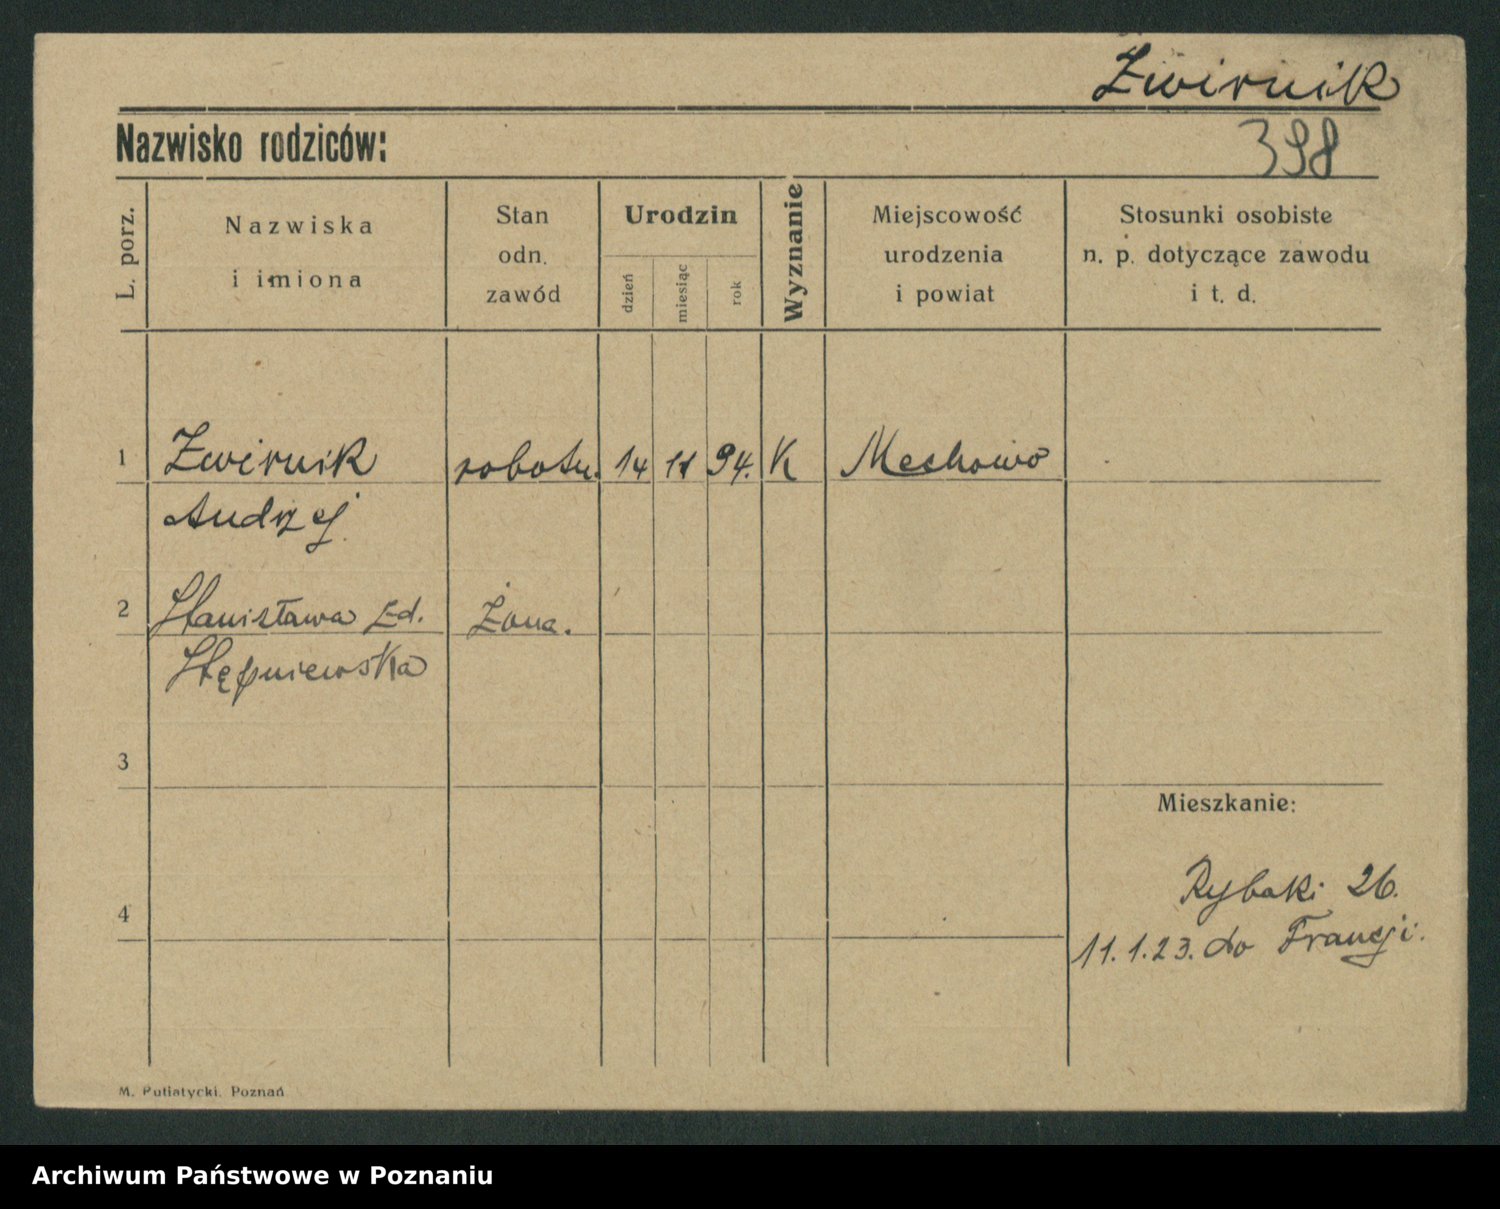 Żwirnik
Nazwisko rodziców:
398
L. porz.
Nazwiska
i imiona
Stan
odn.
zawód
Urodzin
dzień
miesiąc
rok
Wyznanie
Miejscowość
urodzenia
i powiat
Stosunki osobiste
n. p. dotyczące zawodu
i t. d.
1 Zwirnik robotn. 14 11 94. K Mechowo
Andrzej
2 Stanisława zd. Żona.
Stępniewska
3
Mieszkanie:
Rybaki 26.
4
11.1.23. do Francji.
M. Putiatycki. Poznań
Archiwum Państwowe w Poznaniu